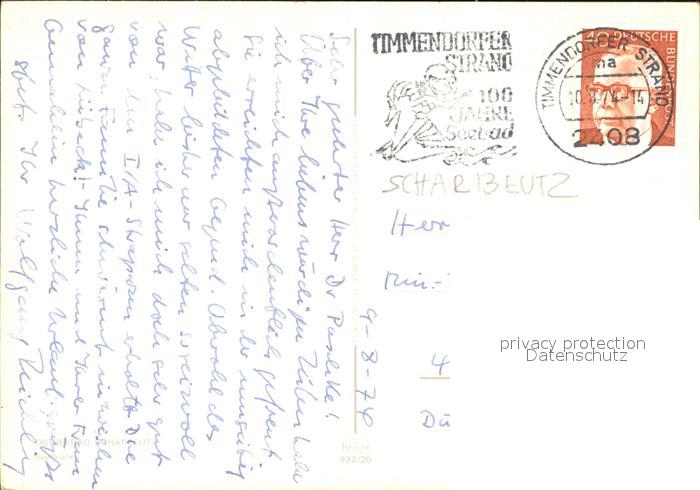 TIMMENDORFER
STRAND
100
JAHRE
Seebad
TIMMENDORFER STRAND
na
10.8.74-14
2408
DEUTSCHE BUNDESPOST
40
SCHARBEUTZ
Herr
Min.-
4
Dü
9-8-74
privacy protection
Datenschutz
Sehr geehrter Herr Dr.
Über Ihre liebenswürdigen Zeilen habe
ich mich außerordentlich gefreut.
Sie erreichten mich in der umseitig
abgebildeten Gegend. Obwohl das
Wetter bisher nur selten so reizvoll
war, habe ich mich doch sehr gut
von den I/A-Strapazen erholt. Die
ganze Familie schwärmt inzwischen
von Ihnen und Ihrer
herzliche Urlaubsgrüße
stets Ihr Wolfgang
OSTSEEBAD SCHARBEUTZ
932/20